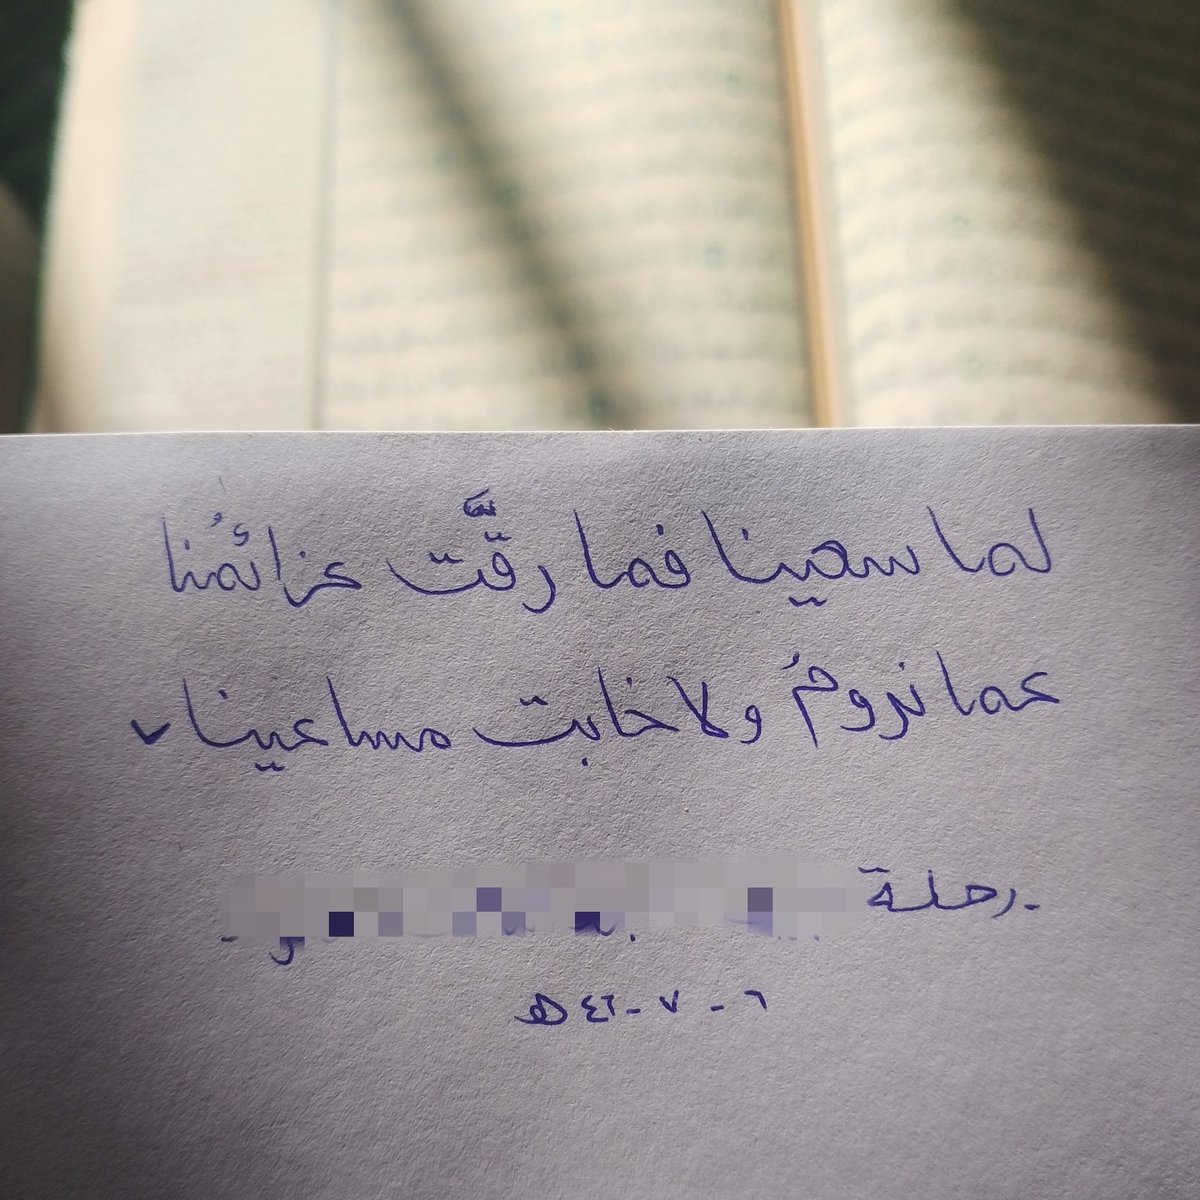 لما سعينا فما رقَّت عزائمُنا
عما نرومُ ولا خابت مساعينا
- رحلة
٦ - ٧ - ٤٢ هـ